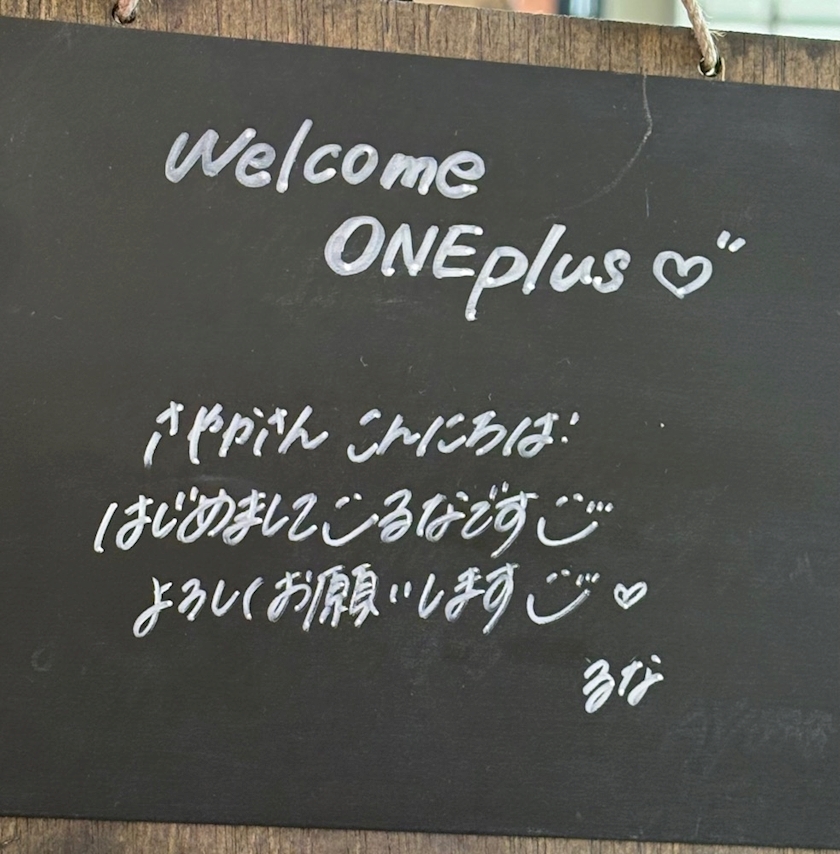 Welcome
ONEplus♡"
さやかさん こんにちは!
はじめまして◡̈るなです◡̈"
よろしくお願いします◡̈"♡
るな